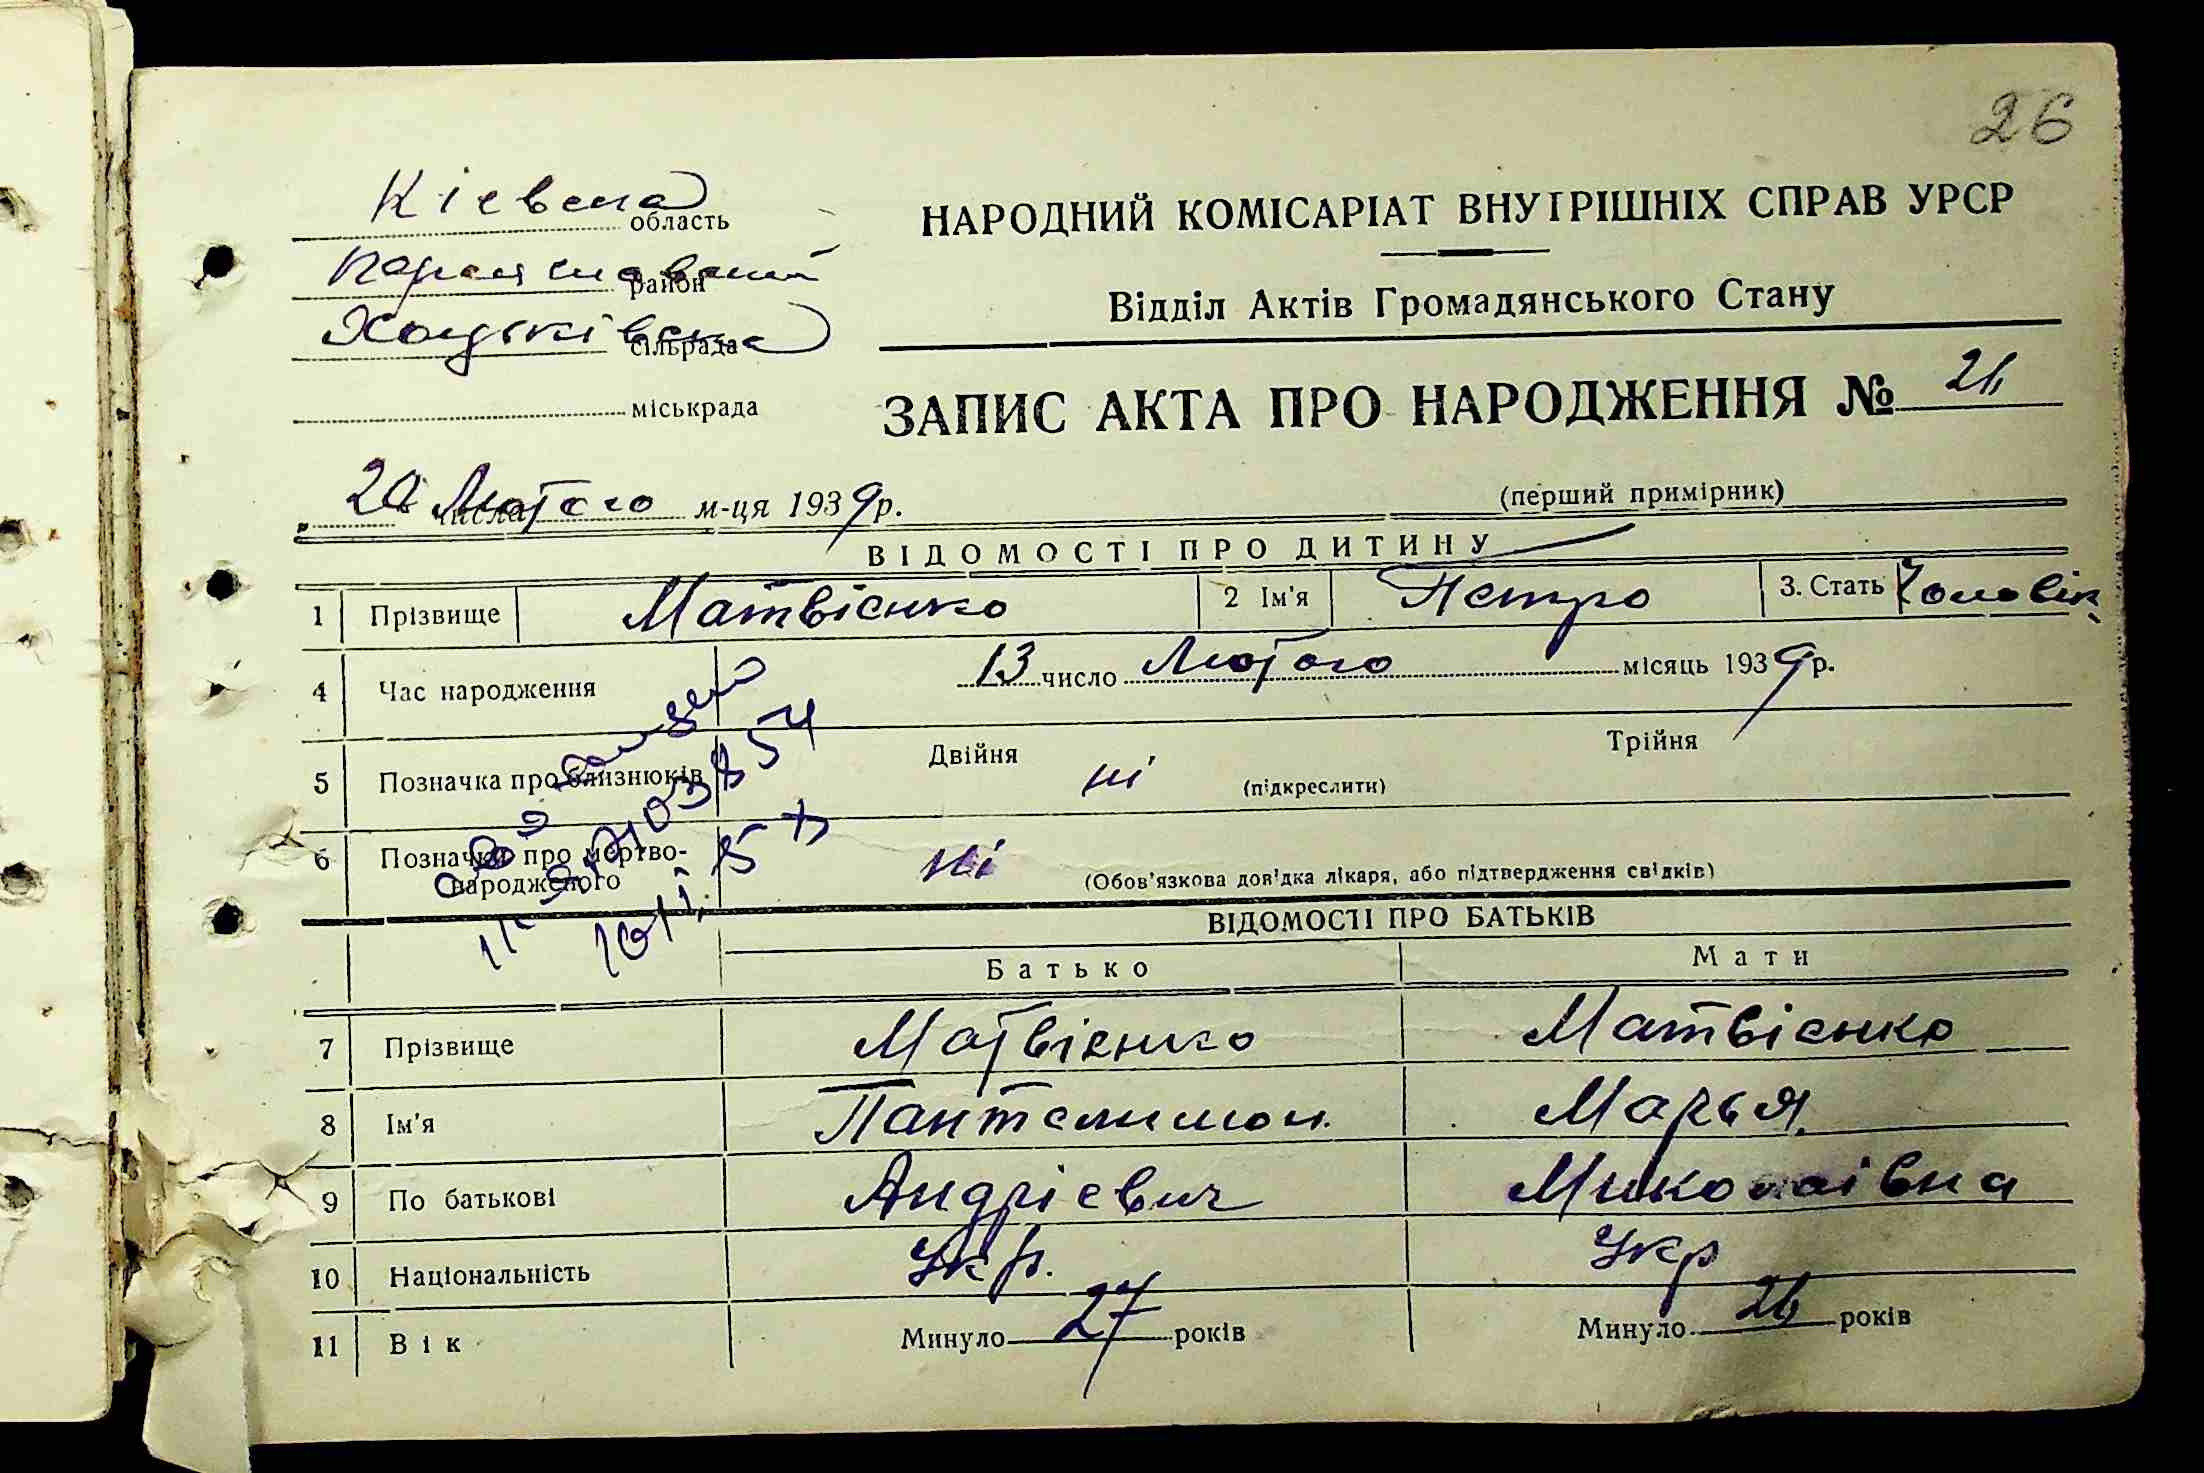 26
Кієвска область
район
Хоцьківска сільрада
міськрада
НАРОДНИЙ КОМІСАРІАТ ВНУТРІШНІХ СПРАВ УРСР
Відділ Актів Громадянського Стану
ЗАПИС АКТА ПРО НАРОДЖЕННЯ № 26
числа Лютого м-ця 1939 р.
(перший примірник)
ВІДОМОСТІ ПРО ДИТИНУ
1 Прізвище Матвієнко 2 Ім'я Петро 3. Стать Чоловік.
4 Час народження 13 число Лютого місяць 1939 р.
5 Позначка про близнюків Двійня ні (підкреслити) Трійня
6 Позначки про мертво-
народженого ні (Обов'язкова довідка лікаря, або підтвердження свідків)
ВІДОМОСТІ ПРО БАТЬКІВ
Батько Мати
7 Прізвище Матвієнко Матвієнко
8 Ім'я Пантелимон. Марья.
9 По батькові Андрієвич Миколаівна
10 Національність Укр. Укр
11 Вік Минуло 27 років Минуло 26 років